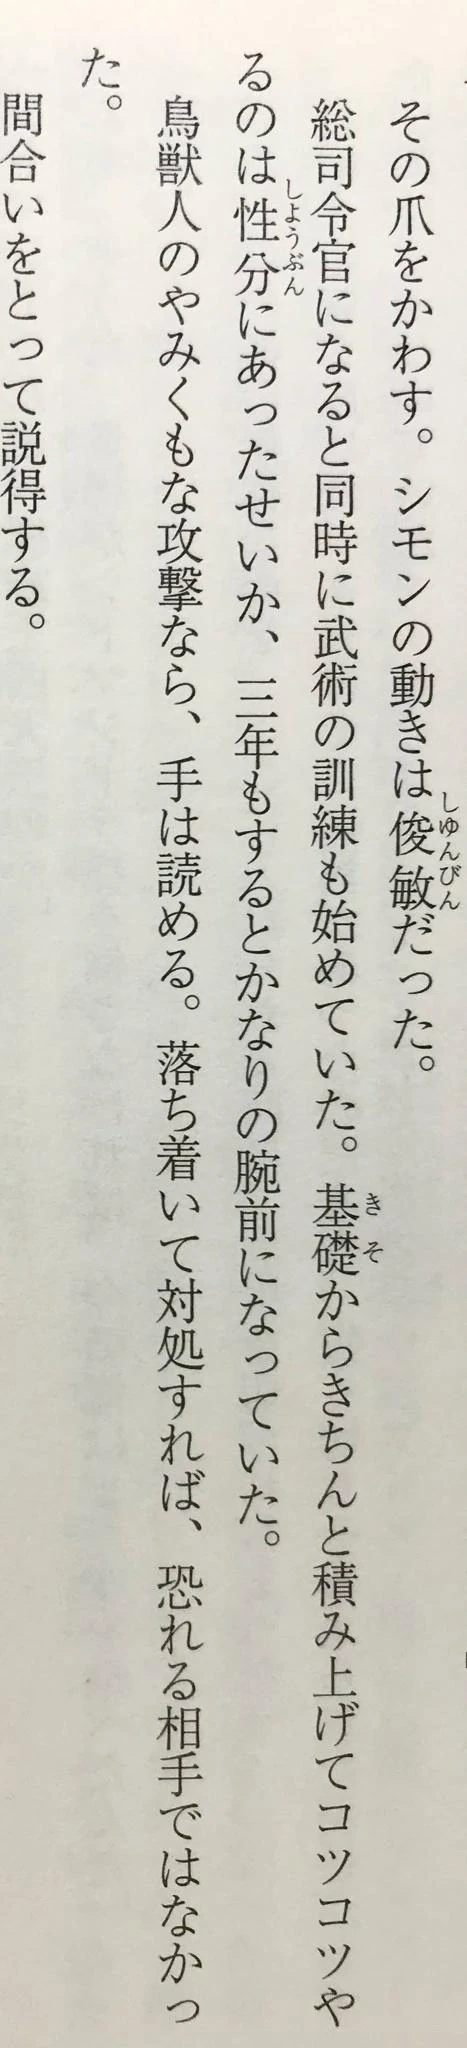 その爪をかわす。シモンの動きは俊敏だった。
総司令官になると同時に武術の訓練も始めていた。基礎からきちんと積み上げてコツコツや
るのは性分にあったせいか、三年もするとかなりの腕前になっていた。
鳥獣人のやみくもな攻撃なら、手は読める。落ち着いて対処すれば、恐れる相手ではなかっ
た。
間合いをとって説得する。